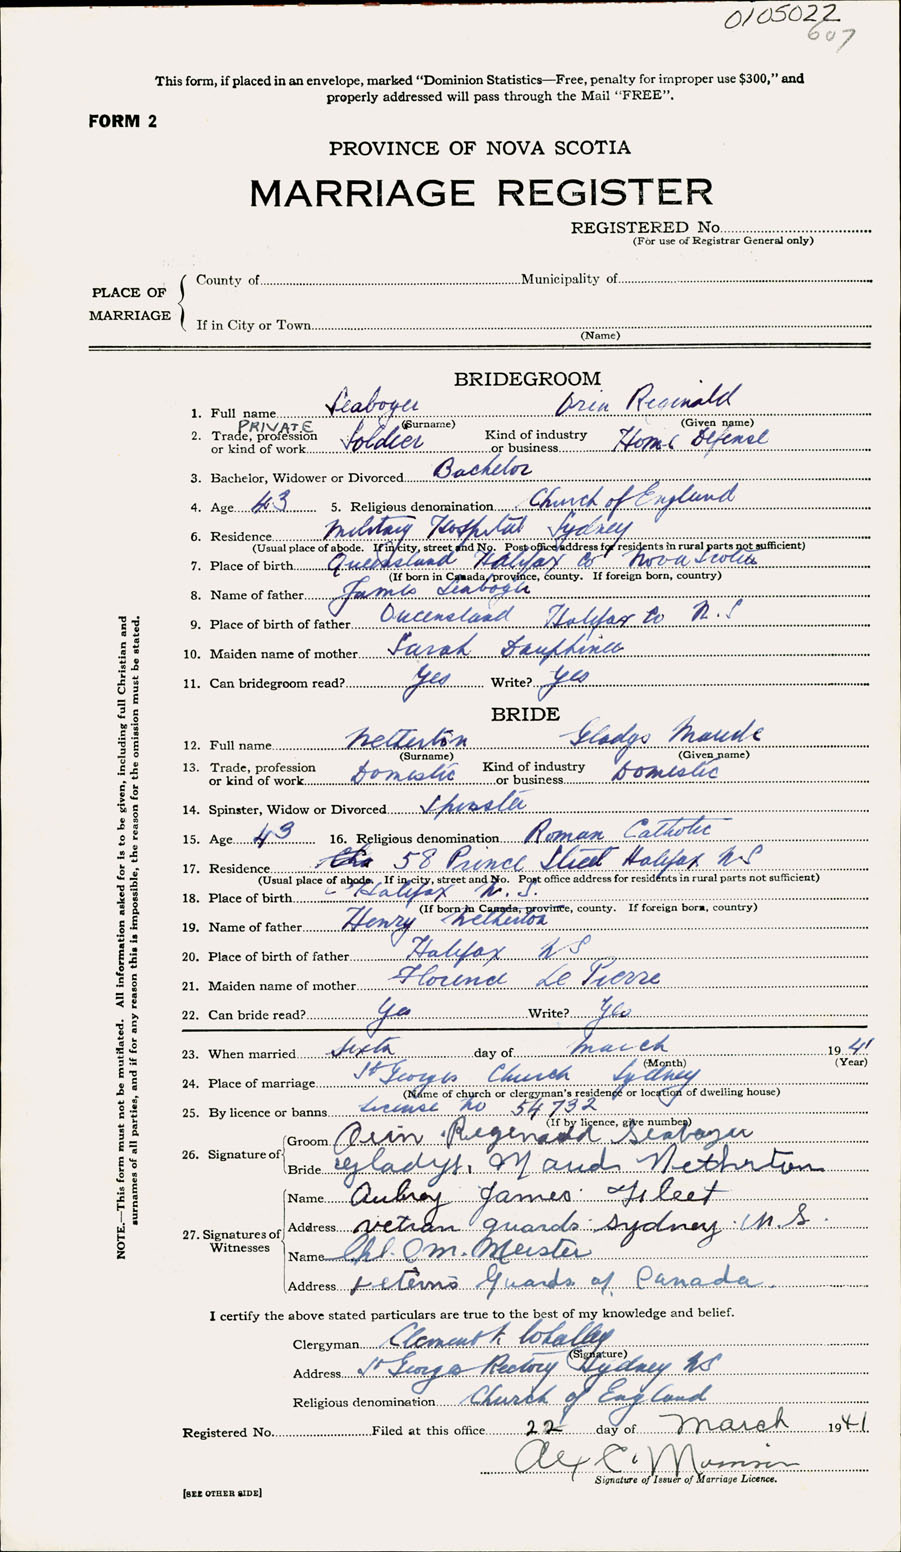 0105022
607
This form, if placed in an envelope, marked "Dominion Statistics—Free, penalty for improper use $300," and
properly addressed will pass through the Mail "FREE".
FORM 2
PROVINCE OF NOVA SCOTIA
MARRIAGE REGISTER
REGISTERED No.
(For use of Registrar General only)
PLACE OF MARRIAGE
County of Municipality of
If in City or Town
(Name)
BRIDEGROOM
1. Full name Seaboyer Orin Reginald
(Surname) (Given name)
PRIVATE
2. Trade, profession or kind of work Soldier Kind of industry or business Home Defense
3. Bachelor, Widower or Divorced Bachelor
4. Age 43 5. Religious denomination Church of England
6. Residence Military Hospital Sydney
(Usual place of abode. If in city, street and No. Post office address for residents in rural parts not sufficient)
7. Place of birth Queensland Halifax Co Nova Scotia
(If born in Canada, province, county. If foreign born, country)
8. Name of father James Seaboyer
9. Place of birth of father Queensland Halifax Co N.S
10. Maiden name of mother Sarah Dauphinee
11. Can bridegroom read? Yes Write? Yes
BRIDE
12. Full name Netherton Gladys Maude
(Surname) (Given name)
13. Trade, profession or kind of work Domestic Kind of industry or business Domestic
14. Spinster, Widow or Divorced Spinster
15. Age 43 16. Religious denomination Roman Catholic
17. Residence 58 Prince Street Halifax NS
(Usual place of abode. If in city, street and No. Post office address for residents in rural parts not sufficient)
18. Place of birth Halifax N.S.
(If born in Canada, province, county. If foreign born, country)
19. Name of father Henry Netherton
20. Place of birth of father Halifax NS
21. Maiden name of mother Florence Le Pierre
22. Can bride read? Yes Write? Yes
23. When married Sixth day of March 1941
(Month) (Year)
24. Place of marriage St Georges Church Sydney
(Name of church or clergyman's residence or location of dwelling house)
25. By licence or banns License No 54732
(If by licence, give number)
26. Signature of Groom Orin Reginald Seaboyer
Bride Gladys Maude Netherton
27. Signatures of Witnesses
Name Aubrey James
Address vetran guards Sydney N.S.
Name O M. Meister
Address Guards of Canada
I certify the above stated particulars are true to the best of my knowledge and belief.
Clergyman Clement Whalley
(Signature)
Address St Georges Rectory Sydney NS
Religious denomination Church of England
Registered No. Filed at this office 22 day of March 1941
Alex C.
Signature of Issuer of Marriage Licence.
[SEE OTHER SIDE]
NOTE.—This form must not be mutilated. All information asked for is to be given, including full Christian and
surnames of all parties, and if for any reason this is impossible, the reason for the omission must be stated.